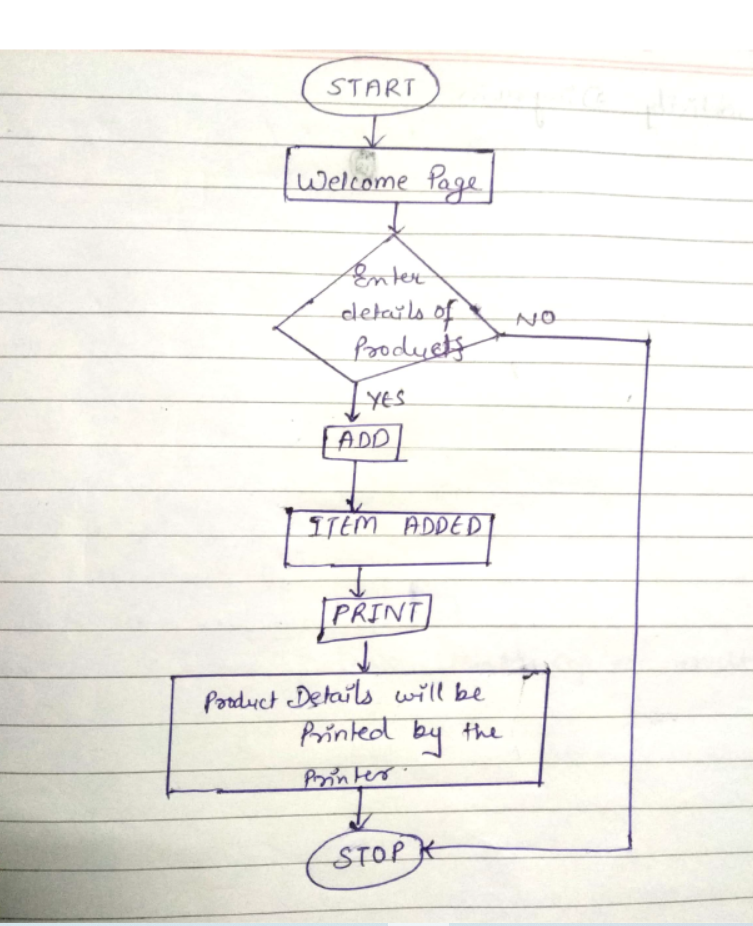 START
Welcome Page
Enter
details of
Products
NO
YES
ADD
ITEM ADDED
PRINT
Product Details will be
Printed by the
Printer.
STOP